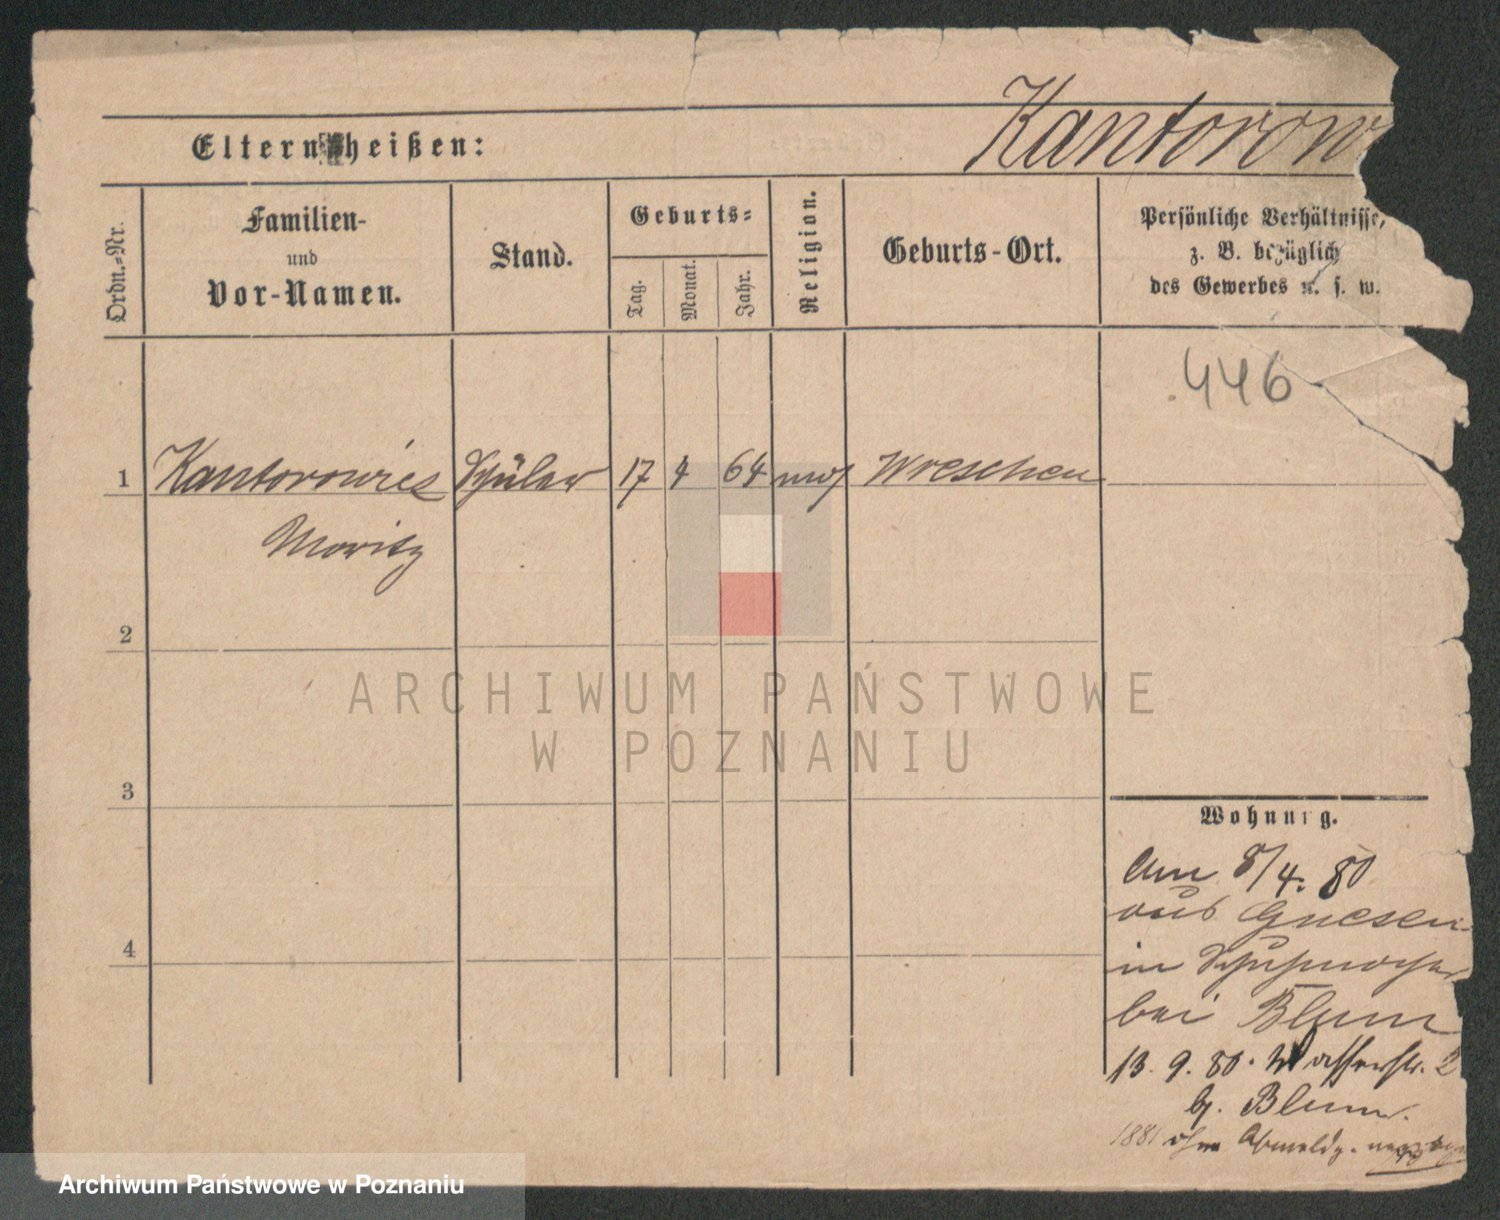 Kantorow
Eltern heißen:
Ordn.-Nr.
Familien-
und
Vor-Namen.
Stand.
Geburts-
Tag.
Monat.
Jahr.
Religion.
Geburts-Ort.
Persönliche Verhältnisse,
z. B. bezüglich
des Gewerbes u. s. w.
446
1 Kantorowicz Schüler 17 4 64 mos Wreschen
Moritz
2
3
4
Wohnung.
Am 8/4. 80
aus Gnesen
in
bei Blum
13. 9. 80. Wasserstr. 2
b. Blum.
1881 ohne Abmeldg.
ARCHIWUM PAŃSTWOWE
W POZNANIU
Archiwum Państwowe w Poznaniu